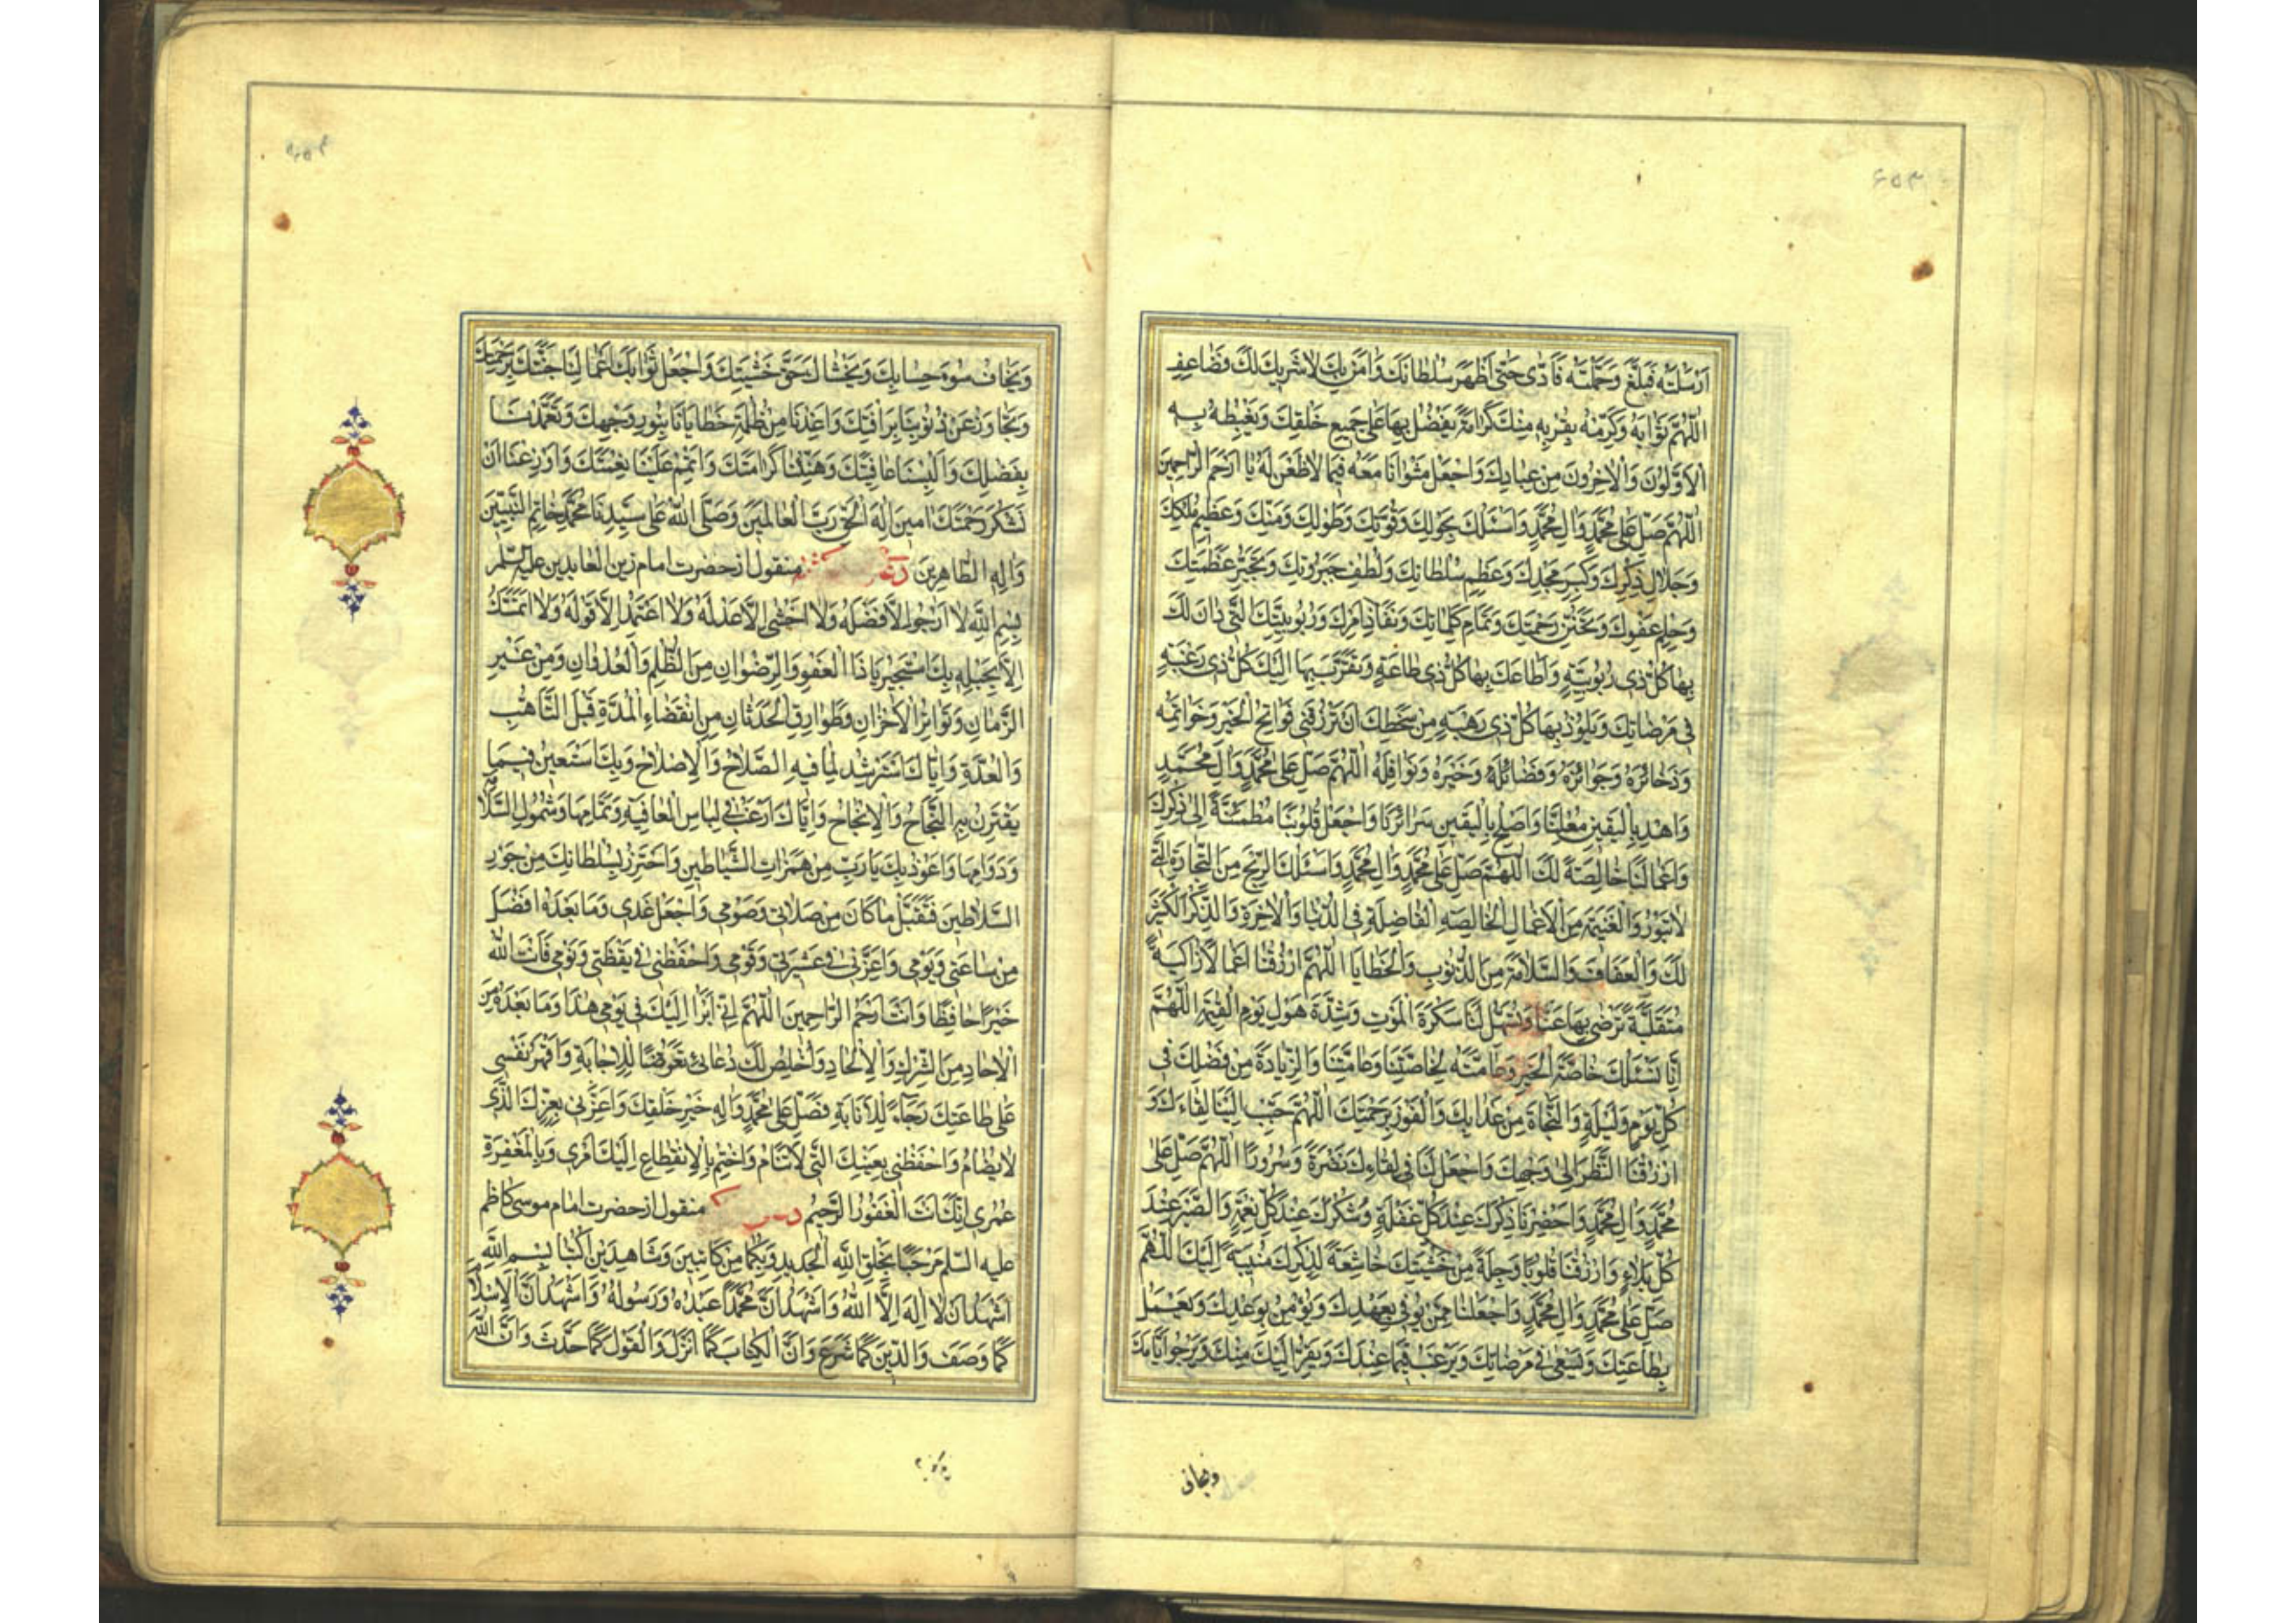 ۶۵۳
اَرْسَلْتَهُ فَبَلَّغَ وَحَمَّلْتَهُ فَاَدّٰى حَتّٰى اَظْهَرَ سُلْطَانَكَ وَاٰمَنَ بِكَ لَاشَرِيكَ لَكَ فَضَاعِفِ
اَللّٰهُمَّ ثَوَابَهُ وَكَرِّمْهُ بِقُرْبِهِ مِنْكَ كَرَامَةً يَفْضُلُ بِهَا عَلٰى جَمِيعِ خَلْقِكَ وَيَغْبِطُهُ بِهِ
الْاَوَّلُونَ وَالْاٰخِرُونَ مِنْ عِبَادِكَ وَاجْعَلْ مَثْوَانَا مَعَهُ فِيمَا لَاظَعْنَ لَهُ يَا اَرْحَمَ الرَّاحِمِينَ
اَللّٰهُمَّ صَلِّ عَلٰى مُحَمَّدٍ وَاٰلِ مُحَمَّدٍ وَاَسْئَلُكَ بِحَوْلِكَ وَقُوَّتِكَ وَطَوْلِكَ وَمَنِّكَ وَعَظِيمِ مُلْكِكَ
وَجَلَالِ ذِكْرِكَ وَكِبَرِ مَجْدِكَ وَعَظَمِ سُلْطَانِكَ وَلُطْفِ جَبَرُوتِكَ وَتَجَبُّرِ عَظَمَتِكَ
وَحِلْمِ عَفْوِكَ وَتَحَنُّنِ رَحْمَتِكَ وَتَمَامِ كَلِمَاتِكَ وَنَفَاذِ اَمْرِكَ وَرُبُوبِيَّتِكَ الَّتِي دَانَ لَكَ
بِهَا كُلُّ ذِى رُبُوبِيَّةٍ وَاَطَاعَكَ بِهَا كُلُّ ذِى طَاعَةٍ وَتَقَرَّبَ بِهَا اِلَيْكَ كُلُّ ذِى رَغْبَةٍ
فِى مَرْضَاتِكَ وَيَلُوذُ بِهَا كُلُّ ذِى رَهْبَةٍ مِنْ سَخَطِكَ اَنْ تَرْزُقَنِى فَوَاتِحَ الْخَيْرِ وَخَوَاتِمَهُ
وَذَخَائِرَهُ وَجَوَائِزَهُ وَفَضَائِلَهُ وَخَيْرَهُ وَنَوَافِلَهُ اَللّٰهُمَّ صَلِّ عَلٰى مُحَمَّدٍ وَاٰلِ مُحَمَّدٍ
وَاهْدِ بِالْيَقِينِ مُعْلِنَنَا وَاَصْلِحْ بِالْيَقِينِ سَرَائِرَنَا وَاجْعَلْ قُلُوبَنَا مُطْمَئِنَّةً اِلٰى ذِكْرِكَ
وَاَعْمَالَنَا خَالِصَةً لَكَ اَللّٰهُمَّ صَلِّ عَلٰى مُحَمَّدٍ وَاٰلِ مُحَمَّدٍ وَاَسْئَلُكَ الرِّبْحَ مِنَ التِّجَارَةِ الَّتِى
لَاتَبُورُ وَالْغَنِيمَةَ مِنَ الْاَعْمَالِ الْخَالِصَةِ الْفَاضِلَةِ فِى الدُّنْيَا وَالْاٰخِرَةِ وَالذِّكْرِ الْكَثِيرِ
لَكَ وَالْعَفَافَ وَالسَّلَامَةَ مِنَ الذُّنُوبِ وَالْخَطَايَا اَللّٰهُمَّ ارْزُقْنَا اَعْمَالًا زَاكِيَةً
مُتَقَبَّلَةً تَرْضٰى بِهَا عَنَّا وَتُسَهِّلُ لَنَا سَكْرَةَ الْمَوْتِ وَشِدَّةَ هَوْلِ يَوْمِ الْقِيٰمَةِ اَللّٰهُمَّ
اِنَّا نَسْئَلُكَ خَاصَّةَ الْخَيْرِ وَعَامَّتَهُ لِخَاصَّتِنَا وَعَامَّتِنَا وَالزِّيَادَةَ مِنْ فَضْلِكَ فِى
كُلِّ يَوْمٍ وَلَيْلَةٍ وَالنَّجَاةَ مِنْ عَذَابِكَ وَالْفَوْزَ بِرَحْمَتِكَ اَللّٰهُمَّ حَبِّبْ اِلَيْنَا لِقَاءَكَ وَ
ارْزُقْنَا النَّظَرَ اِلٰى وَجْهِكَ وَاجْعَلْ لَنَا فِى لِقَاءِكَ نَضْرَةً وَسُرُورًا اَللّٰهُمَّ صَلِّ عَلٰى
مُحَمَّدٍ وَاٰلِ مُحَمَّدٍ وَاَحْضِرْنَا ذِكْرَكَ عِنْدَ كُلِّ غَفْلَةٍ وَشُكْرَكَ عِنْدَ كُلِّ نِعْمَةٍ وَالصَّبْرَ عِنْدَ
كُلِّ بَلَاءٍ وَارْزُقْنَا قُلُوبًا وَجِلَةً مِنْ خَشْيَتِكَ خَاشِعَةً لِذِكْرِكَ مُنِيبَةً اِلَيْكَ اَللّٰهُمَّ
صَلِّ عَلٰى مُحَمَّدٍ وَاٰلِ مُحَمَّدٍ وَاجْعَلْنَا مِمَّنْ يُوفِى بِعَهْدِكَ وَيُؤْمِنُ بِوَعْدِكَ وَيَعْمَلُ
بِطَاعَتِكَ وَيَسْعٰى فِى مَرْضَاتِكَ وَيَرْغَبُ فِيمَا عِنْدَكَ وَيَفِرُّ اِلَيْكَ مِنْكَ وَيَرْجُو اَيَّامَكَ
ويخاف
وَيَخَافُ سُوءَ حِسَابِكَ وَيَخْشَاكَ حَقَّ خَشْيَتِكَ وَاجْعَلْ ثَوَابَ اَعْمَالِنَا جَنَّتَكَ بِرَحْمَتِكَ
وَتَجَاوَزْ عَنْ ذُنُوبِنَا بِرَأْفَتِكَ وَاَعِذْنَا مِنْ ظُلْمَةِ خَطَايَانَا بِنُورِ وَجْهِكَ وَتَغَمَّدْنَا
بِفَضْلِكَ وَاَلْبِسْنَا عَافِيَتَكَ وَهَنِّئْنَا كَرَامَتَكَ وَاَتْمِمْ عَلَيْنَا نِعْمَتَكَ وَاَوْزِعْنَا اَنْ
نَشْكُرَ رَحْمَتَكَ اٰمِينَ اِلٰهَ الْحَقِّ رَبَّ الْعَالَمِينَ وَصَلَّى اللّٰهُ عَلٰى سَيِّدِنَا مُحَمَّدٍ خَاتَمِ النَّبِيِّينَ
وَاٰلِهِ الطَّاهِرِينَ منقول از حضرت امام زين العابدين عليه السّلم
بِسْمِ اللّٰهِ لَا اَرْجُو اِلَّا فَضْلَهُ وَلَا اَخْشٰى اِلَّا عَدْلَهُ وَلَا اَعْتَمِدُ اِلَّا قَوْلَهُ وَلَا اَتَمَسَّكُ
اِلَّا بِحَبْلِهِ بِكَ اَسْتَجِيرُ يَا ذَا الْعَفْوِ وَالرِّضْوَانِ مِنَ الظُّلْمِ وَالْعُدْوَانِ وَمِنْ غِيَرِ
الزَّمَانِ وَتَوَاتُرِ الْاَحْزَانِ وَطَوَارِقِ الْحَدَثَانِ مِنِ انْقِضَاءِ الْمُدَّةِ قَبْلَ التَّأَهُّبِ
وَالْعُدَّةِ وَاِيَّاكَ اَسْتَرْشِدُ لِمَا فِيهِ الصَّلَاحُ وَالْاِصْلَاحُ وَبِكَ اَسْتَعِينُ فِيمَا
يَقْتَرِنُ بِهِ النَّجَاحُ وَالْاِنْجَاحُ وَاِيَّاكَ اَرْغَبُ فِى لِبَاسِ الْعَافِيَةِ وَتَمَامِهَا وَشُمُولِ السَّلَامَةِ
وَدَوَامِهَا وَاَعُوذُ بِكَ يَا رَبِّ مِنْ هَمَزَاتِ الشَّيَاطِينِ وَاَحْتَرِزُ بِسُلْطَانِكَ مِنْ جَوْرِ
السَّلَاطِينَ فَتَقَبَّلْ مَا كَانَ مِنْ صَلَاتِى وَصَوْمِى وَاجْعَلْ غَدِى وَمَا بَعْدَهُ اَفْضَلَ
مِنْ سَاعَتِى وَيَوْمِى وَاَعِزَّنِى فِى عَشِيرَتِى وَقَوْمِى وَاحْفَظْنِى فِى يَقْظَتِى وَنَوْمِى فَاَنْتَ اللّٰهُ
خَيْرٌ حَافِظًا وَاَنْتَ اَرْحَمُ الرَّاحِمِينَ اَللّٰهُمَّ اِنِّى اَبْرَأُ اِلَيْكَ فِى يَوْمِى هٰذَا وَمَا بَعْدَهُ مِنَ
الْاٰحَادِ مِنَ الشِّرْكِ وَالْاِلْحَادِ وَاُخْلِصُ لَكَ دُعَائِى تَعَرُّضًا لِلْاِجَابَةِ وَاَقْهَرُ نَفْسِى
عَلٰى طَاعَتِكَ رَجَاءً لِلْاِنَابَةِ فَصَلِّ عَلٰى مُحَمَّدٍ وَاٰلِهِ خَيْرِ خَلْقِكَ وَاَعِزَّنِى بِعِزِّكَ الَّذِى
لَايُضَامُ وَاحْفَظْنِى بِعَيْنِكَ الَّتِى لَاتَنَامُ وَاخْتِمْ بِالْاِنْقِطَاعِ اِلَيْكَ اَمْرِى وَبِالْمَغْفِرَةِ
عُمْرِى اِنَّكَ اَنْتَ الْغَفُورُ الرَّحِيمُ منقول از حضرت امام موسى كاظم
عليه السّلم مَرْحَبًا بِخَلْقِ اللّٰهِ الْجَدِيدِ وَبِكُمَا مِنْ كَاتِبَيْنِ وَشَاهِدَيْنِ اُكْتُبَا بِسْمِ اللّٰهِ
اَشْهَدُ اَنْ لَا اِلٰهَ اِلَّا اللّٰهُ وَاَشْهَدُ اَنَّ مُحَمَّدًا عَبْدُهُ وَرَسُولُهُ وَاَشْهَدُ اَنَّ الْاِسْلَامَ
كَمَا وَصَفَ وَالدِّينَ كَمَا شَرَعَ وَاَنَّ الْكِتَابَ كَمَا اَنْزَلَ وَالْقَوْلَ كَمَا حَدَّثَ وَاَنَّ اللّٰهَ